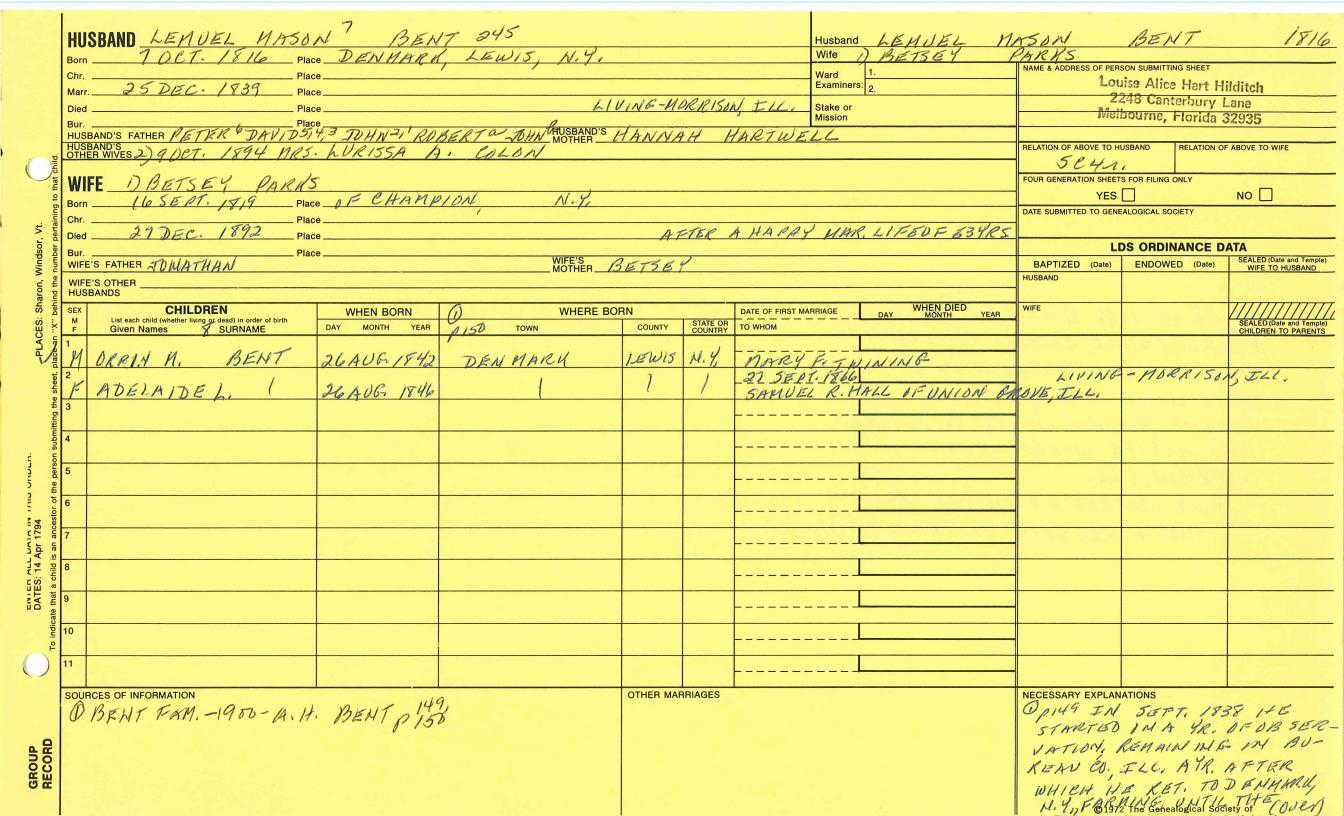 HUSBAND LEMUEL MASON 7 BENT 245
Born 7 OCT. 1816 Place DENMARK, LEWIS, N.Y.
Chr. Place
Marr. 25 DEC. 1839 Place
Died Place LIVING-MORRISON, ILL.
Bur. Place
HUSBAND'S FATHER PETER 6 DAVID 5,4,3 JOHN 2,1 ROBERT JOHN HUSBAND'S MOTHER HANNAH HARTWELL
HUSBAND'S OTHER WIVES 2) 9 OCT. 1894 MRS. LURISSA A. COLON
WIFE 1) BETSEY PARKS
Born 16 SEPT. 1819 Place OF CHAMPION, N.Y.
Chr. Place
Died 27 DEC. 1892 Place AFTER A HAPPY MAR. LIFE OF 53 YRS
Bur. Place
WIFE'S FATHER JONATHAN WIFE'S MOTHER BETSEY
WIFE'S OTHER HUSBANDS
Husband LEMUEL MASON BENT 1816
Wife 1) BETSEY PARKS
Ward Examiners: 1.
2.
Stake or Mission
NAME & ADDRESS OF PERSON SUBMITTING SHEET
Louise Alice Hart Hilditch
2248 Canterbury Lane
Melbourne, Florida 32935
RELATION OF ABOVE TO HUSBAND RELATION OF ABOVE TO WIFE
5C4r.
FOUR GENERATION SHEETS FOR FILING ONLY
YES NO
DATE SUBMITTED TO GENEALOGICAL SOCIETY
LDS ORDINANCE DATA
BAPTIZED (Date) ENDOWED (Date) SEALED (Date and Temple) WIFE TO HUSBAND
HUSBAND
WIFE
SEALED (Date and Temple) CHILDREN TO PARENTS
SEX M F
CHILDREN
List each child (whether living or dead) in order of birth
Given Names 8 SURNAME
WHEN BORN
DAY MONTH YEAR
① p150
WHERE BORN
TOWN COUNTY STATE OR COUNTRY
DATE OF FIRST MARRIAGE
TO WHOM
WHEN DIED
DAY MONTH YEAR
1 M ORRIN M. BENT 26 AUG 1842 DENMARK LEWIS N.Y. MARY F. TWINING
2 F ADELAIDE L. 26 AUG 1846 22 SEPT. 1866 LIVING-MORRISON, ILL.
SAMUEL R. HALL OF UNION GROVE, ILL.
3
4
5
6
7
8
9
10
11
SOURCES OF INFORMATION
① BENT FAM. -1900- A.H. BENT p 149, 150
OTHER MARRIAGES
NECESSARY EXPLANATIONS
① p149 IN SEPT. 1838 HE
STARTED ON A YR. OF OBSER-
VATION, REMAINING IN BU-
REAU CO., ILL. A YR. AFTER
WHICH HE RET. TO DENMARK,
N.Y., FARMING UNTIL THE (OVER)
©1972 The Genealogical Society of
PLACES: Sharon, Windsor, Vt.
ENTER ALL DATA IN THIS ORDER:
DATES: 14 Apr 1794
To indicate that a child is an ancestor of the person submitting the sheet, place an "X" behind the number pertaining to that child.
GROUP RECORD